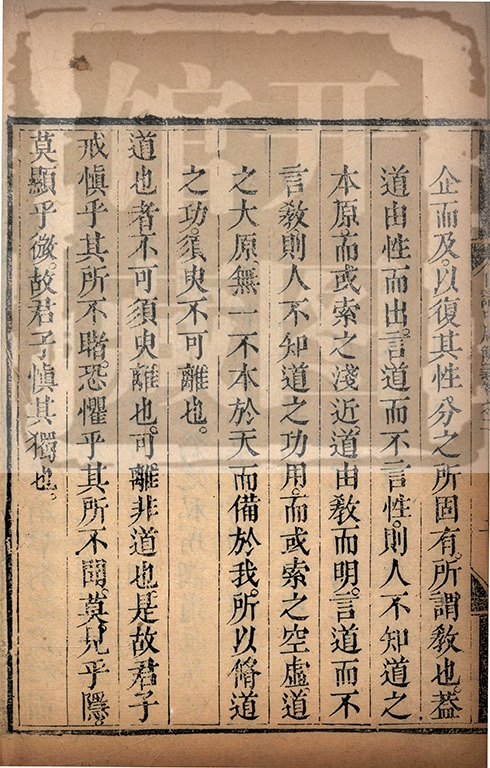 企而及。以復其性分之所固有。所謂敎也。葢
道由性而出。言道而不言性。則人不知道之
本原。而或索之淺近。道由敎而明。言道而不
言敎。則人不知道之功用。而或索之空虛。道
之大原。無一不本於天而備於我。所以脩道
之功。須臾不可離也。
道也者不可須臾離也。可離非道也。是故君子
戒愼乎其所不睹。恐懼乎其所不聞。莫見乎隱。
莫顯乎微。故君子愼其獨也。